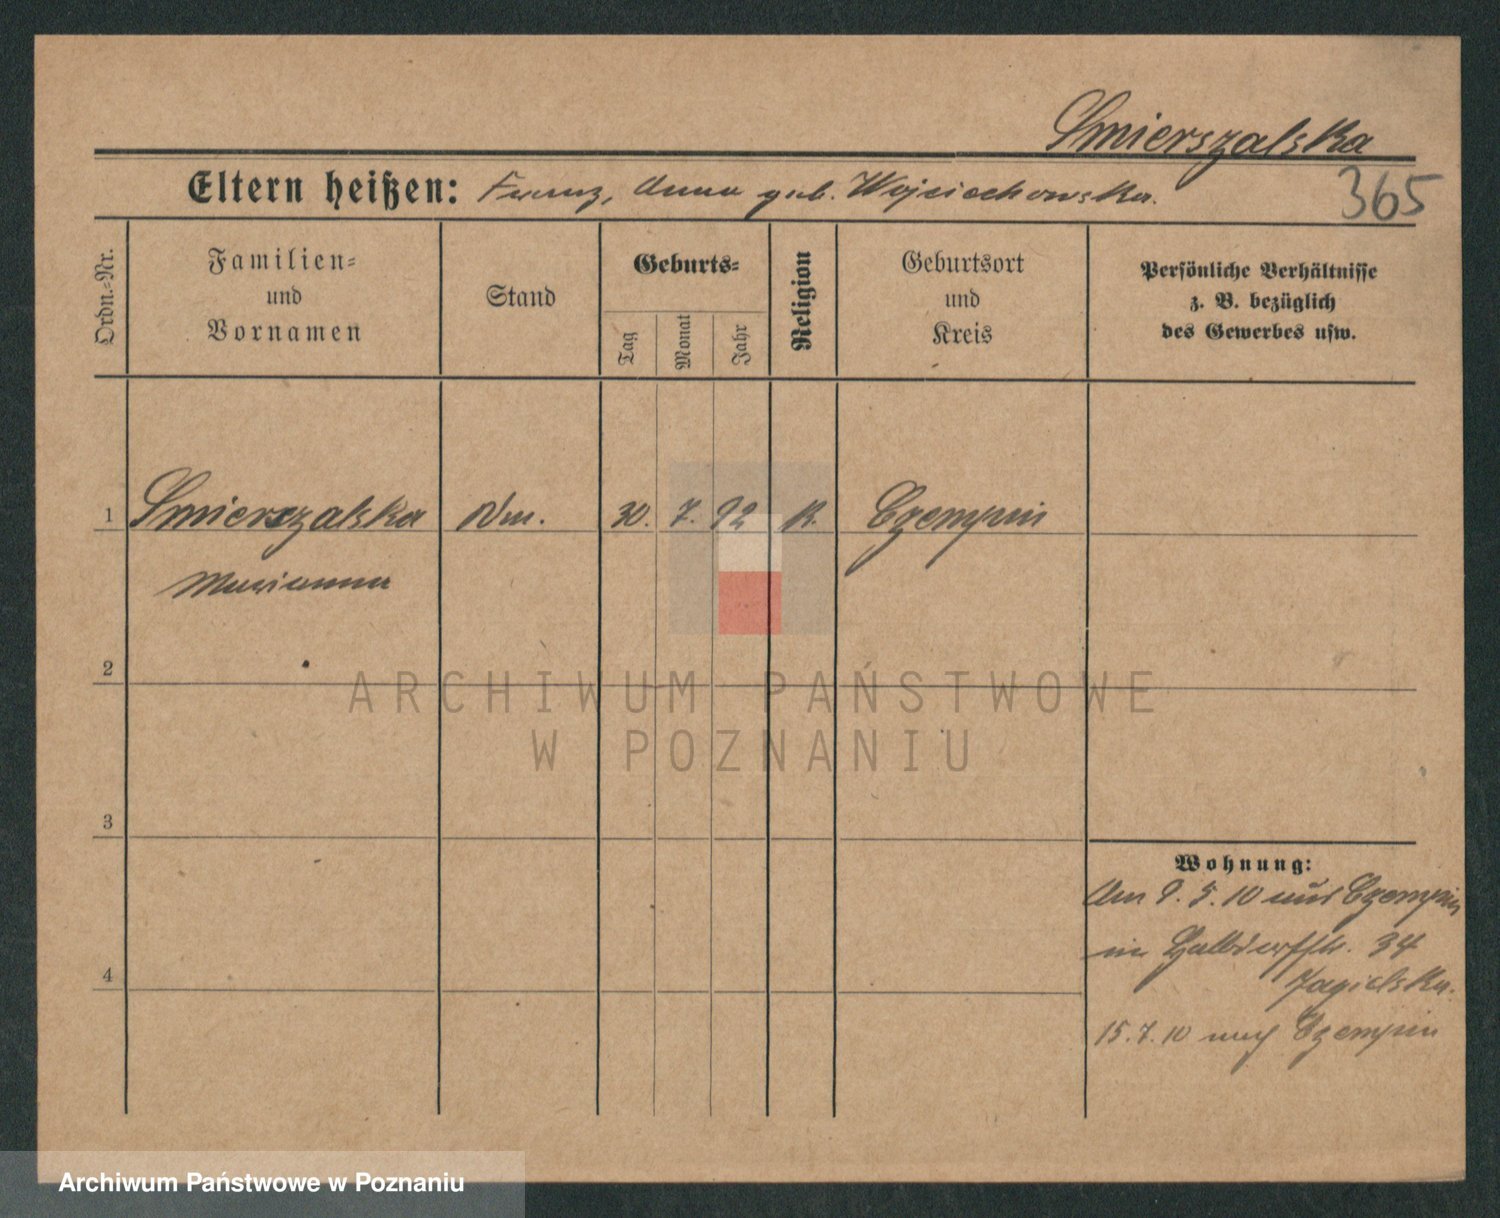 Smierszalska
Eltern heißen: Franz, Anna geb. Wojciechowska.
365
Ordn.=Nr.
Familien=
und
Vornamen
Stand
Geburts=
Tag
Monat
Jahr
Religion
Geburtsort
und
Kreis
Persönliche Verhältnisse
z. B. bezüglich
des Gewerbes usw.
1 Smierszalska 30. 7. 92 K. Czempin
Marianna
2
3
4
Wohnung:
Am 9. 5. 10 aus Czempin
in Halbdorfstr. 34
Jagielska.
15. 7. 10 nach Czempin
ARCHIWUM PAŃSTWOWE
W POZNANIU
Archiwum Państwowe w Poznaniu